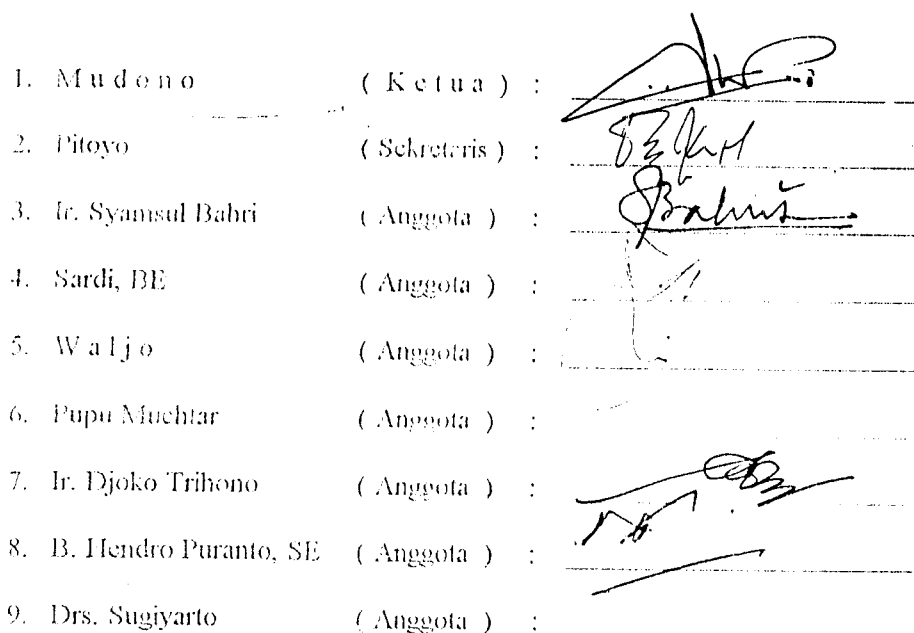 1. M u d o n o ( K e t u a ) :
2. Pitoyo ( Sekretaris ) :
3. Ir. Syamsul Bahri ( Anggota ) :
4. Sardi, BE ( Anggota ) :
5. W a l j o ( Anggota ) :
6. Pupu Muchtar ( Anggota ) :
7. Ir. Djoko Trihono ( Anggota ) :
8. B. Hendro Puranto, SE ( Anggota ) :
9. Drs. Sugiyarto ( Anggota ) :